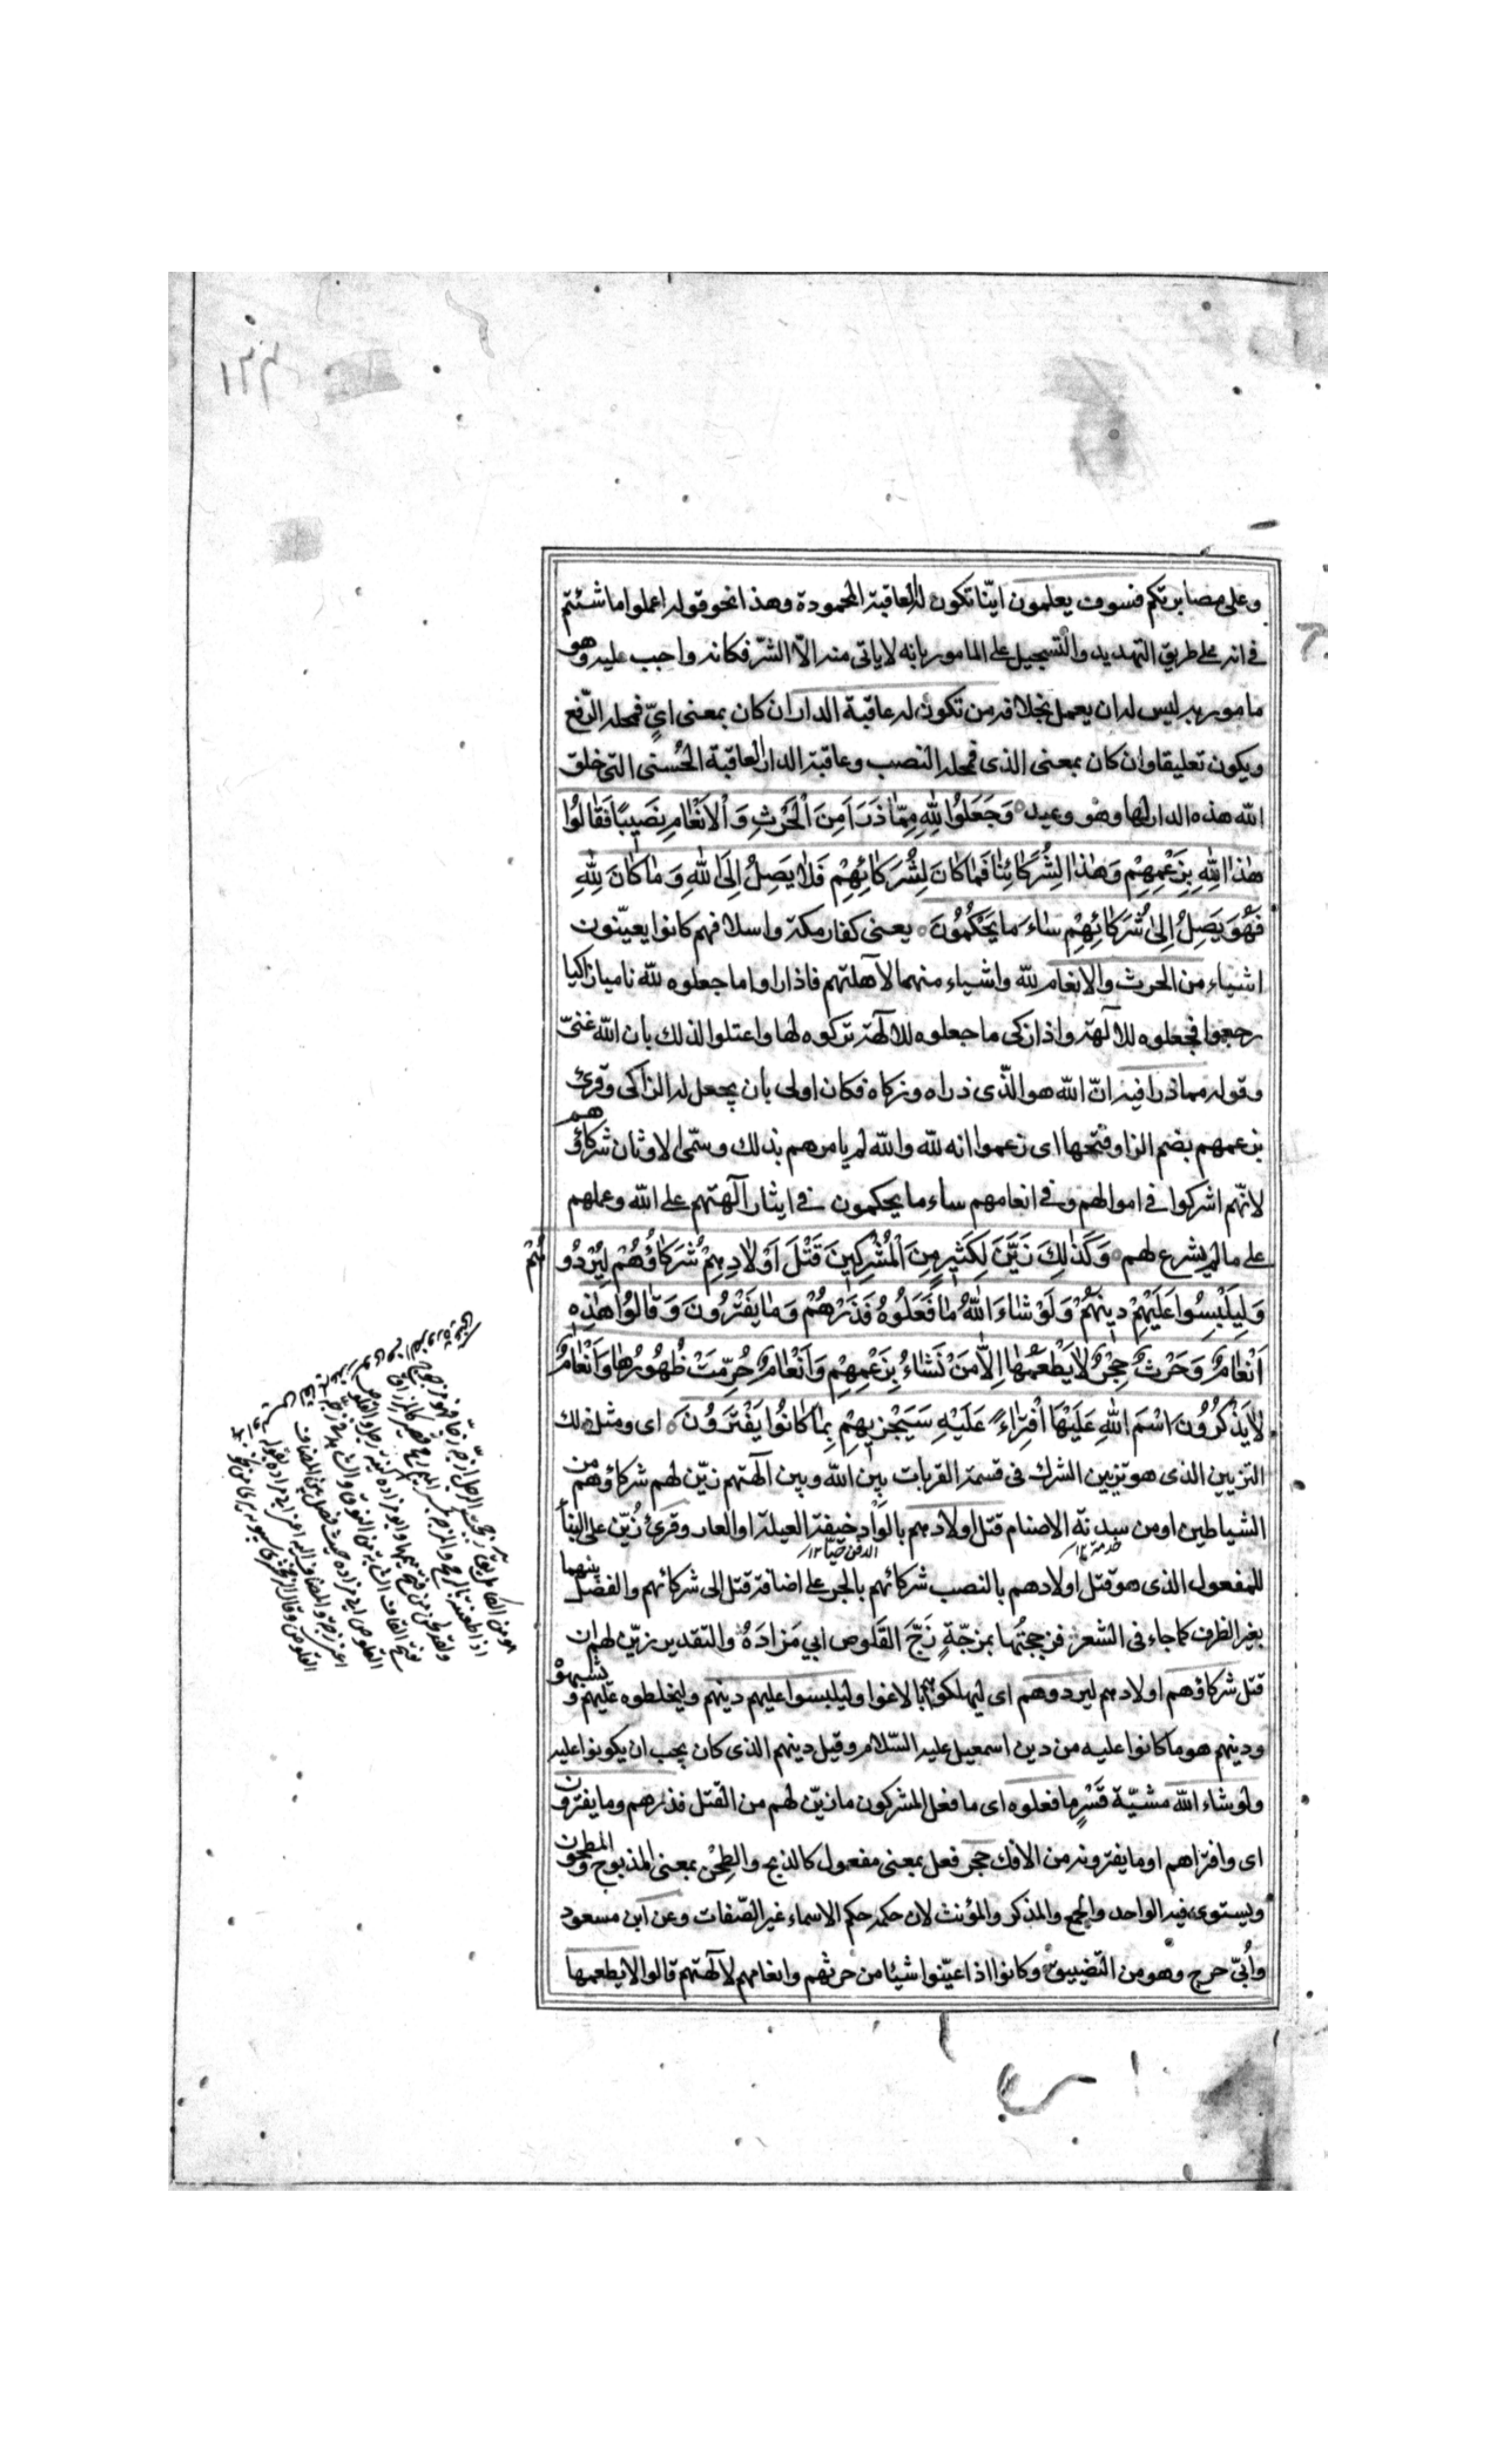 وعلى مصابرتكم فسوف يعلمون ايّنا تكون له العاقبة المحمودة وهذا نحو قوله اعملوا ما شئتم
فى انه على طريق التهديد والتسجيل على المامور بانه لا ياتى منه الّا الشرّ فكانه واجب عليه وهو
مامور به ليس له ان يعمل بخلافه من تكون له عاقبة الدار ان كان بمعنى ايٍّ فمحله الرّفع
ويكون تعليقا وان كان بمعنى الذى فمحله النصب وعاقبة الدار العاقبة الحُسنى التى خلق
الله هذه الدار لها وهو وعيد وَجَعَلُوا لِلّٰهِ مِمّٰا ذَرَاَ مِنَ الْحَرْثِ وَ الْاَنْعٰامِ نَصِيبًا فَقٰالُوا
هٰذٰا لِلّٰهِ بِزَعْمِهِمْ وَهٰذٰا لِشُرَكٰائِنٰا فَمٰا كٰانَ لِشُرَكٰائِهِمْ فَلٰا يَصِلُ اِلَى اللّٰهِ وَ مٰا كٰانَ لِلّٰهِ
فَهُوَ يَصِلُ اِلىٰ شُرَكٰائِهِمْ سٰاءَ مٰا يَحْكُمُونَ يعنى كفار مكة واسلافهم كانوا يعيّنون
اشياء من الحرث والانعام لله واشياء منهما لآلهتهم فاذا راوا ما جعلوه لله ناميا زاكيا
رجعوا فجعلوه للآلهة واذا زكى ما جعلوه للآلهة تركوه لها واعتلوا لذلك بان الله غنىّ
وقوله مما ذرا فيه انّ الله هو الّذى ذراه وزكاه فكان اولى بان يجعل له الزاكى وقرئ
بزعمهم بضم الزا وفتحها اى زعموا انه لله والله لم يامرهم بذلك وسمّى الاوثان شركاؤهم
لانّهم اشركوا فى اموالهم وفى انعامهم ساء ما يحكمون فى ايثار آلهتهم على الله وعملهم
على ما لم يشرع لهم وَكَذٰلِكَ زَيَّنَ لِكَثِيرٍ مِنَ الْمُشْرِكِينَ قَتْلَ اَوْلٰادِهِمْ شُرَكٰاؤُهُمْ لِيُرْدُوهُمْ
وَلِيَلْبِسُوا عَلَيْهِمْ دِينَهُمْ وَلَوْ شٰاءَ اللّٰهُ مٰا فَعَلُوهُ فَذَرْهُمْ وَمٰا يَفْتَرُونَ وَقٰالُوا هٰذِهِ
اَنْعٰامٌ وَحَرْثٌ حِجْرٌ لٰا يَطْعَمُهٰا اِلّٰا مَنْ نَشٰاءُ بِزَعْمِهِمْ وَاَنْعٰامٌ حُرِّمَتْ ظُهُورُهٰا وَاَنْعٰامٌ
لٰا يَذْكُرُونَ اسْمَ اللّٰهِ عَلَيْهَا افْتِرٰاءً عَلَيْهِ سَيَجْزِيهِمْ بِمٰا كٰانُوا يَفْتَرُونَ اى ومثل ذلك
التزيين الذى هو تزيين الشرك فى قسمة القربات بين الله وبين آلهتهم زيّن لهم شركاؤهم من
الشياطين او من سدنة الاصنام قتل اولادهم بالوَاْد خيفة العيلة او العار وقرئ زُيّن على البنا
خدمة ١٢
الدفن حيّا ١٢
للمفعول الذى هو قتل اولادهم بالنصب شركائهم بالجر على اضافة قتل الى شركائهم والفصل بينهما
بغير الظرف كما جاء فى الشعر فزججتُها بمزجّةٍ زَجَّ القَلوص ابي مَزادَهْ والتقدير زيّن لهم ان
قتل شركاؤهم اولادهم ليردوهم اى ليهلكوهم بالاغوا وليلبسوا عليهم دينهم وليخلطوه عليهم ويشبهوْ
ودينهم هو ما كانوا عليه من دين اسمعيل عليه السّلام وقيل دينهم الذى كان يجب ان يكونوا عليه
ولو شاء الله مشيّة قَسْرٍ ما فعلوه اى ما فعل المشركون ما زيّن لهم من القتل فذرهم وما يفترون
اى وافتراهم او ما يفترونه من الافك حجر فعل بمعنى مفعول كالذبح والطِحْن بمعنى المذبوح والمطحون
ويستوى فيه الواحد والجمع والمذكر والمؤنث لان حكمه حكم الاسماء غير الصّفات وعن ابن مسعود
واُبىّ حرج وهو من التضييق وكانوا اذا عيّنوا شيئا من حرثهم وانعامهم لآلهتهم قالوا لا يطعمها